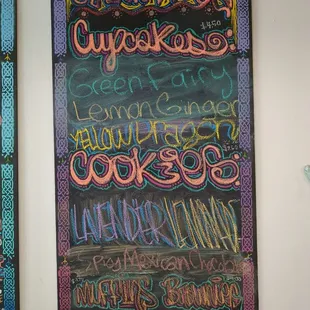 Cupcakes: $4.50
Green Fairy
Lemon Ginger
Yellow Dragon
Cookies:
Lavender Lemon
Spicy Mexican Chocolate
Muffins Brownies